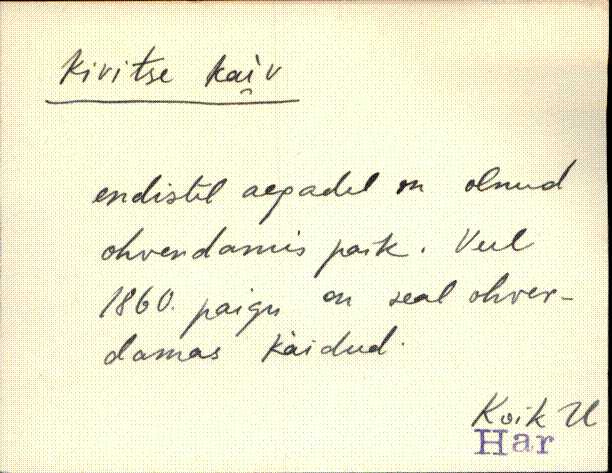 Kivitse kai̯v
endistel aegadel on olnud
ohverdamis paik. Veel
1860. paigu on seal ohver-
damas käidud.
Koik U
Har